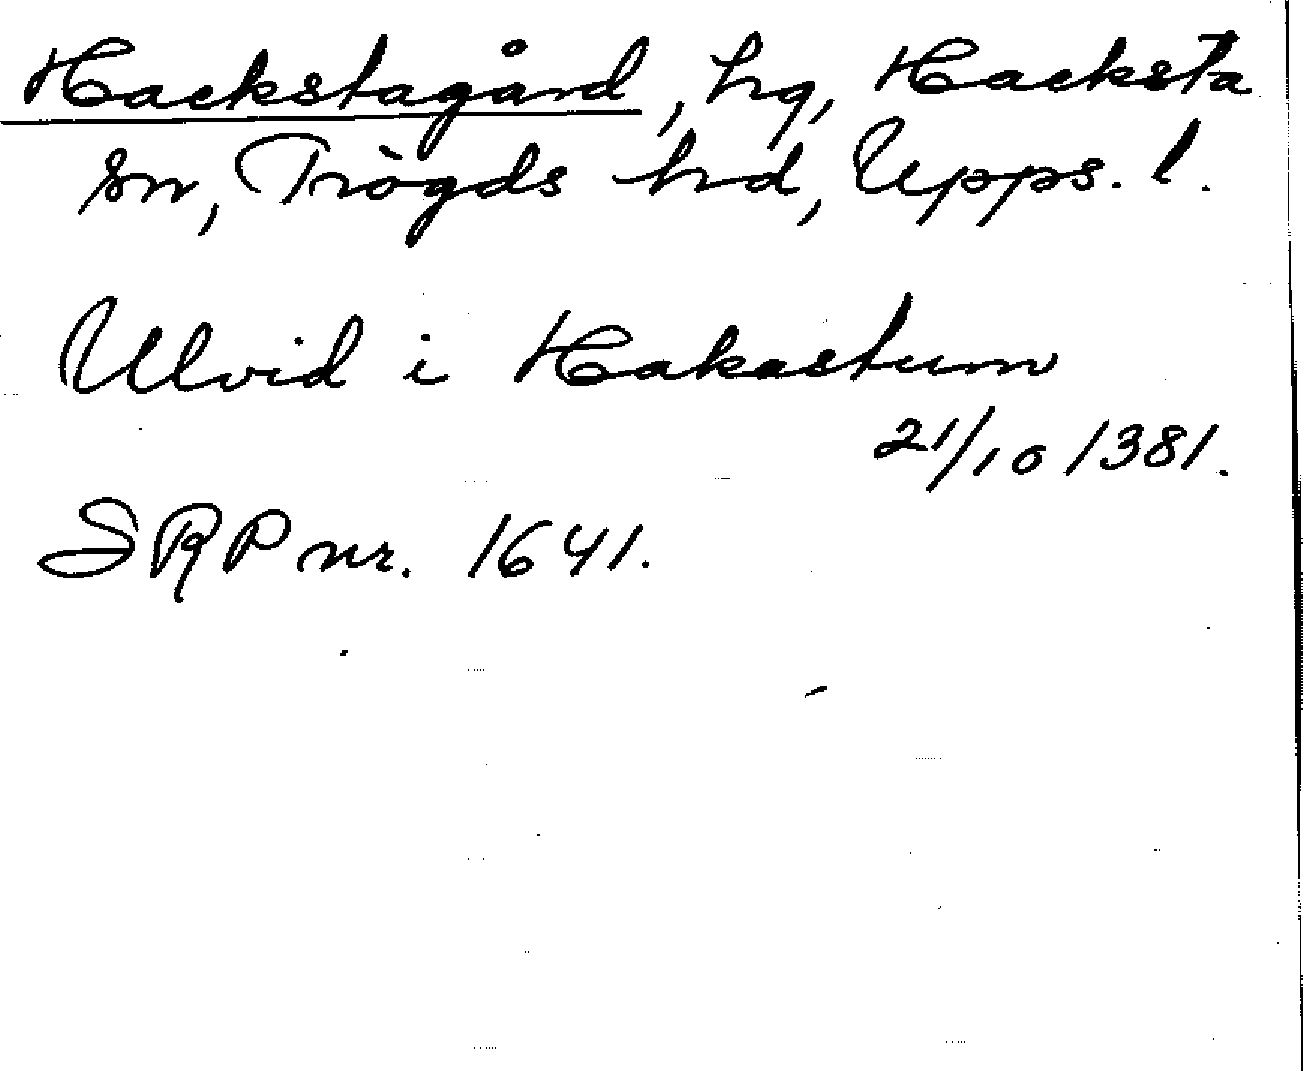 Hackstagård, hg, Hacksta
sn, Trögds hd, Upps. l.
Ulvid i Hakastum
21/10 1381.
SRP nr. 1641.